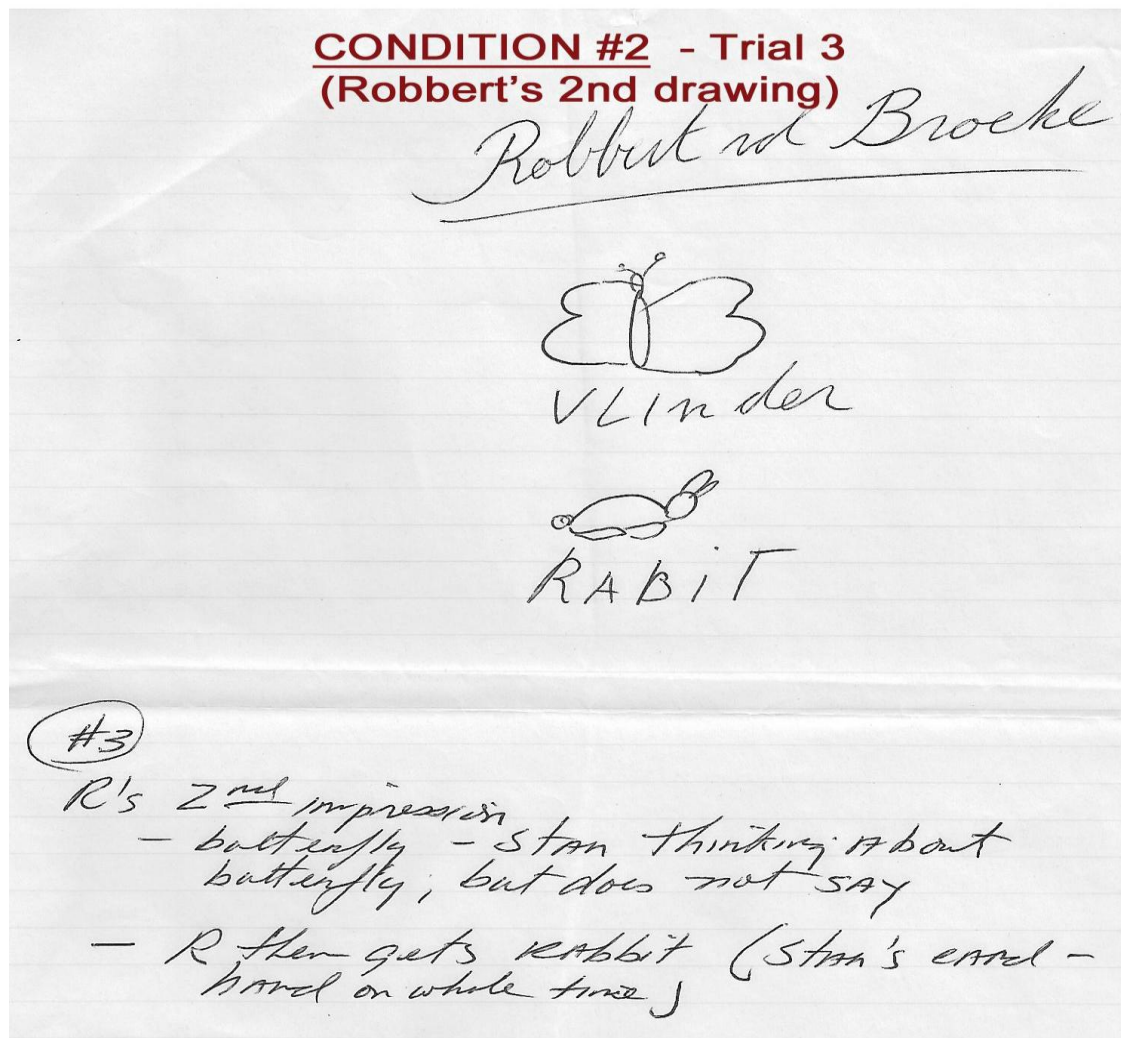 CONDITION #2 - Trial 3
(Robbert's 2nd drawing)
Robbert vd Broeke
VLINder
RABiT
#3
R's 2nd impression
- butterfly - Stan thinking About
butterfly, but does not SAY
- R then gets RAbbit (Stan's cARd -
hAnd on whole time)